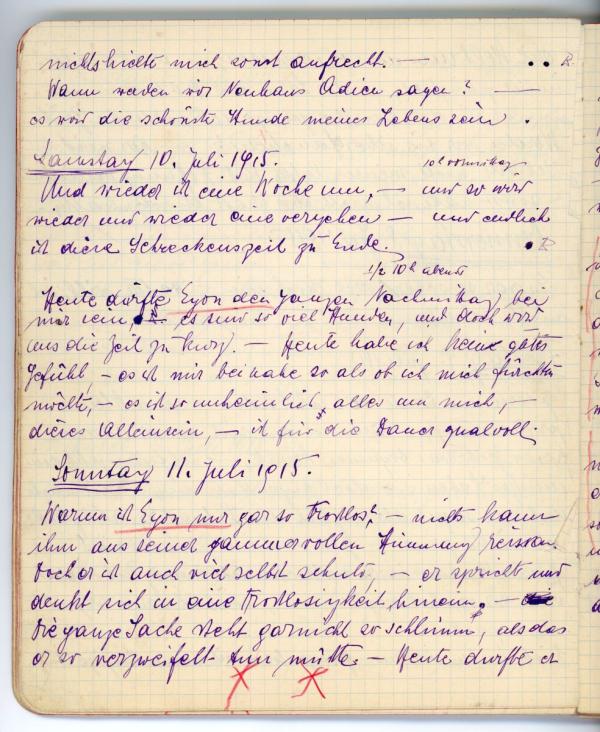 nichts hielte mich sonst aufrecht. —
Wann werden wir Neuhaus Adieu sagen? —
es wird die schönste Stunde meines Lebens sein.
Samstag 10. Juli 1915.
10h vormittag
Und wieder ist eine Woche um, — und so wird
wieder und wieder eine vergehen — und endlich
ist diese Schreckenszeit zu Ende.
1/2 10h abends
Heute durfte Egon den ganzen Nachmittag bei
mir sein, es sind so viel Stunden, und doch wird
uns die Zeit zu kurz. — Heute habe ich kein gutes
Gefühl, — es ist mir beinahe so als ob ich mich fürchten
möchte, — es ist so unheimlich, alles um mich, —
dieses Alleinsein, — ist für die Dauer qualvoll.
Sonntag 11. Juli 1915.
Warum ist Egon nur gar so trostlos? — nichts kann
ihn aus seiner jammervollen Stimmung reissen.
Doch er ist auch viel selbst schuld, — er spricht und
denkt sich in eine Trostlosigkeit hinein. —
Die ganze Sache steht garnicht so schlimm, als das
er so verzweifelt tun müßte. — Heute durfte er